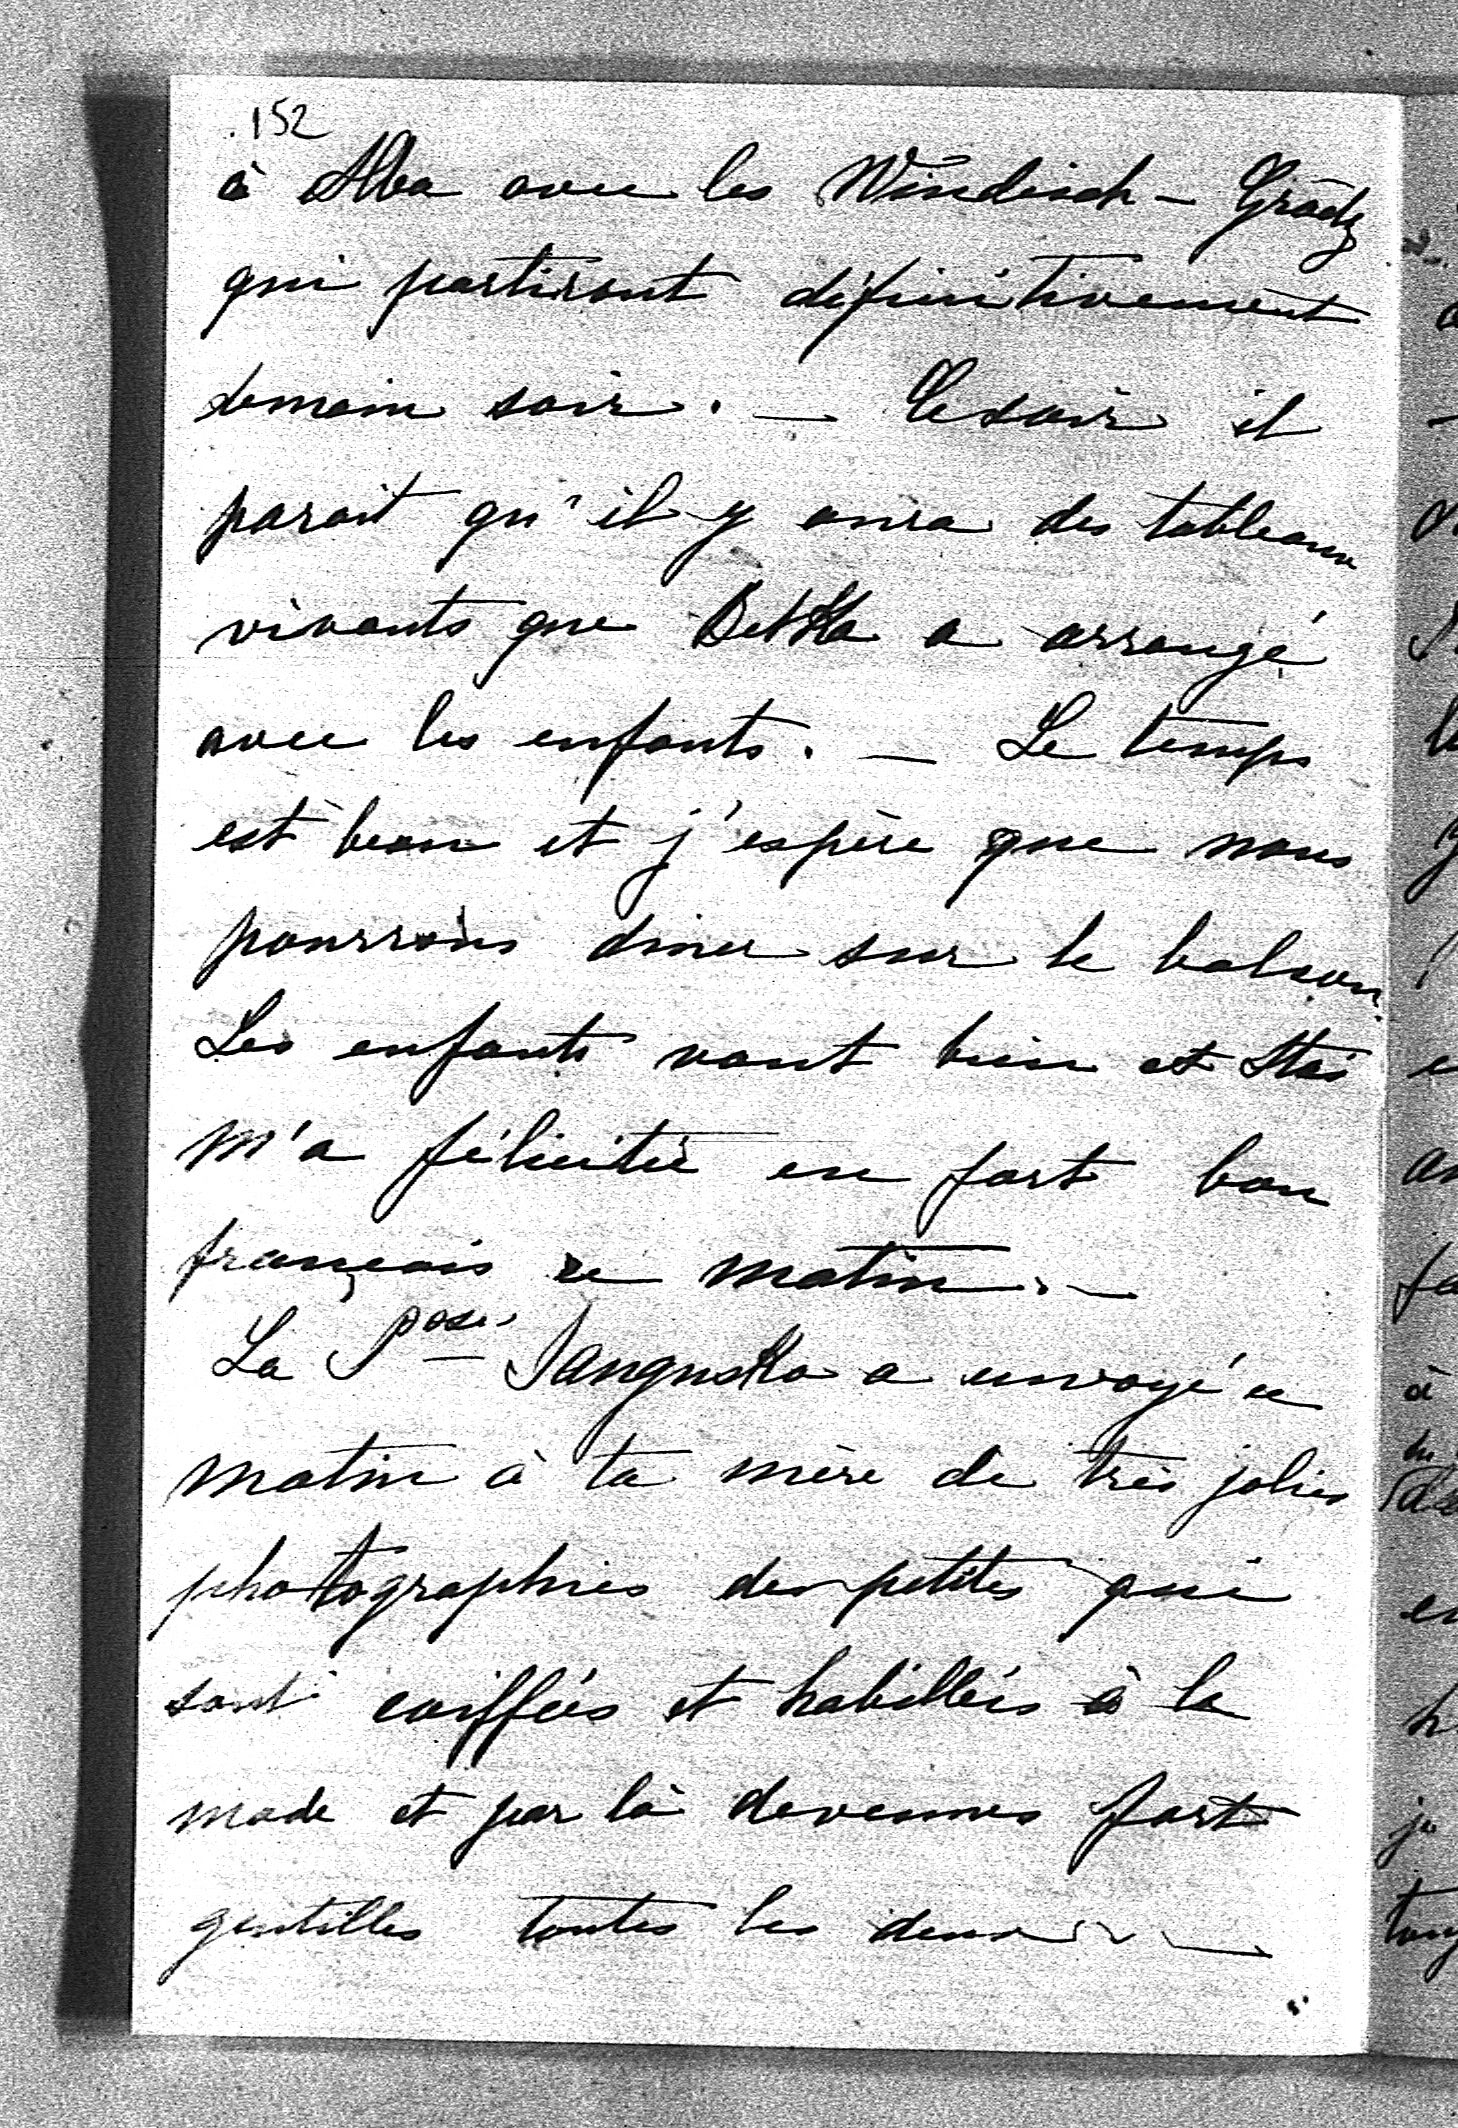 152
à Alba avec les Windisch-Grätz
qui partiront définitivement
demain soir. — Ce soir il
parait qu'il y aura des tableaux
vivants que Betka a arrangé
avec les enfants. — Le temps
est beau et j'espère que nous
pourrons diner sur le balcon.
Les enfants vont bien et Stas
m'a félicité en fort bon
français ce matin. —
La Psse Sanguska a envoyé ce
matin à ta mère de très jolies
photographies des petites qui
sont coiffées et habillées à la
mode et par là devenues fort
gentilles toutes les deux. —